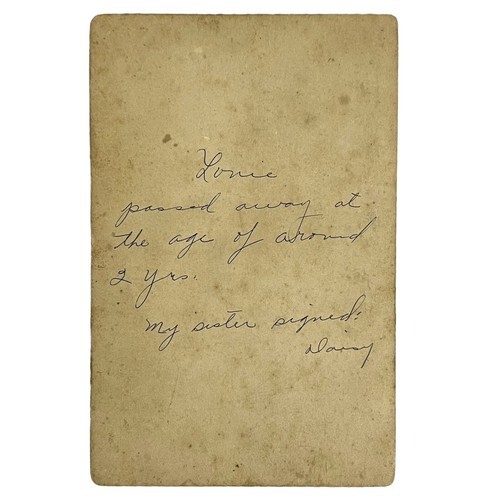 Lonie
passed away at
the age of around
2 yrs.
My sister signed:
Daisy